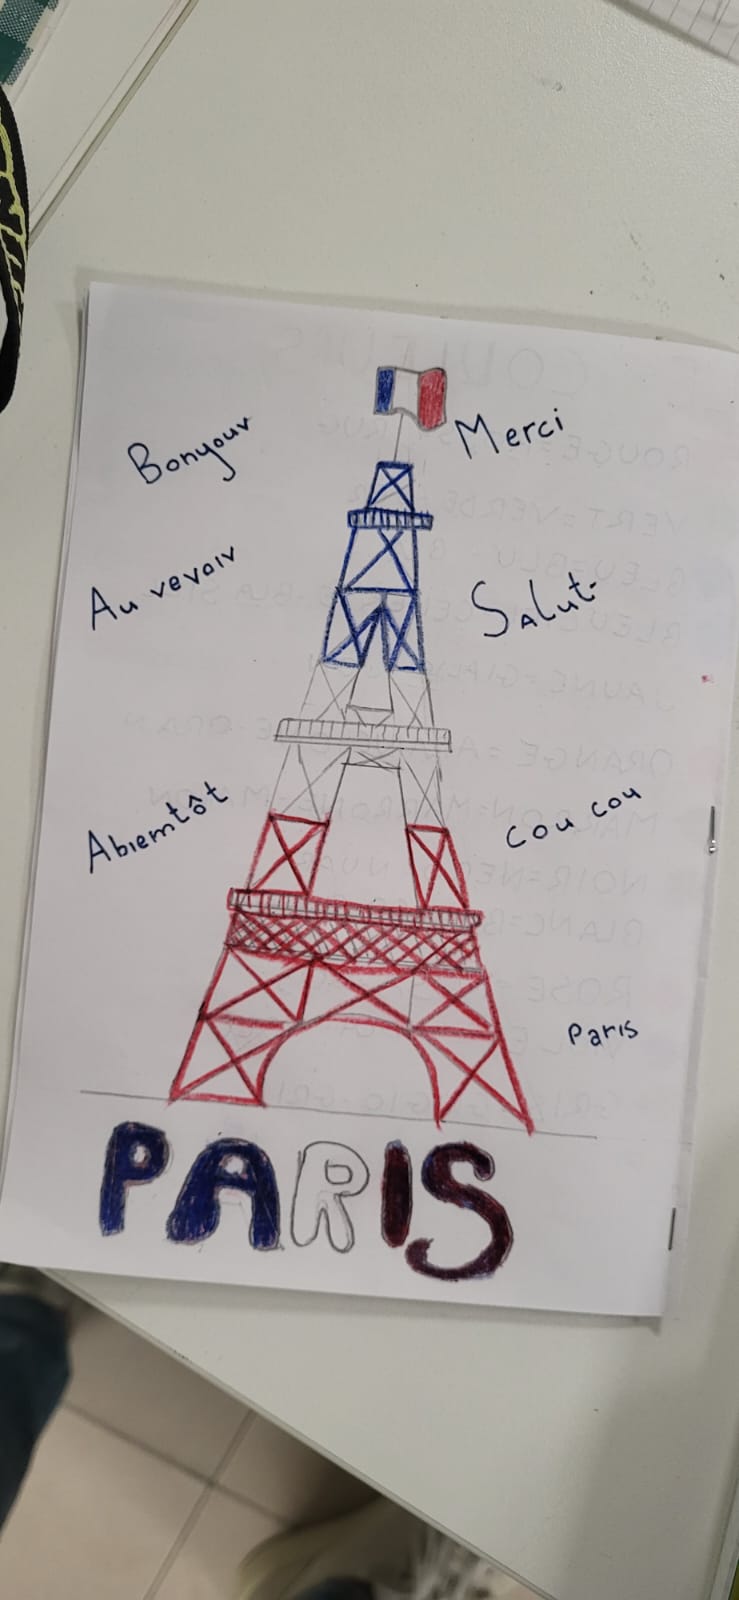 Bonyour
Merci
Au revoir
Salut
Abiemtôt
cou cou
Paris
PARIS